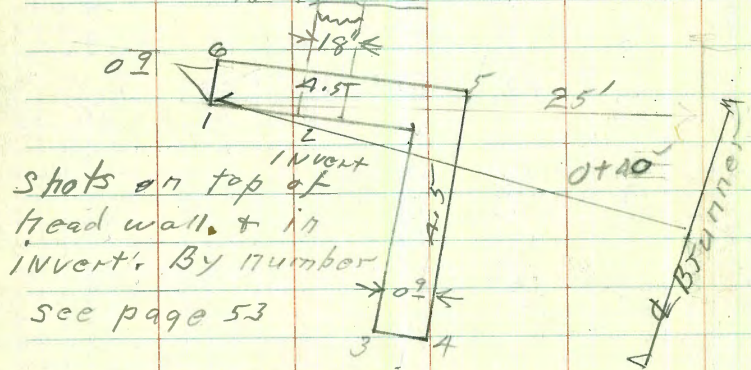 18"
0 9
6
4.5
5
25'
1
2
Invert
0+40
Shots on top of
head wall. & in
invert. By number
see page 53
4.5
0 9
3
4